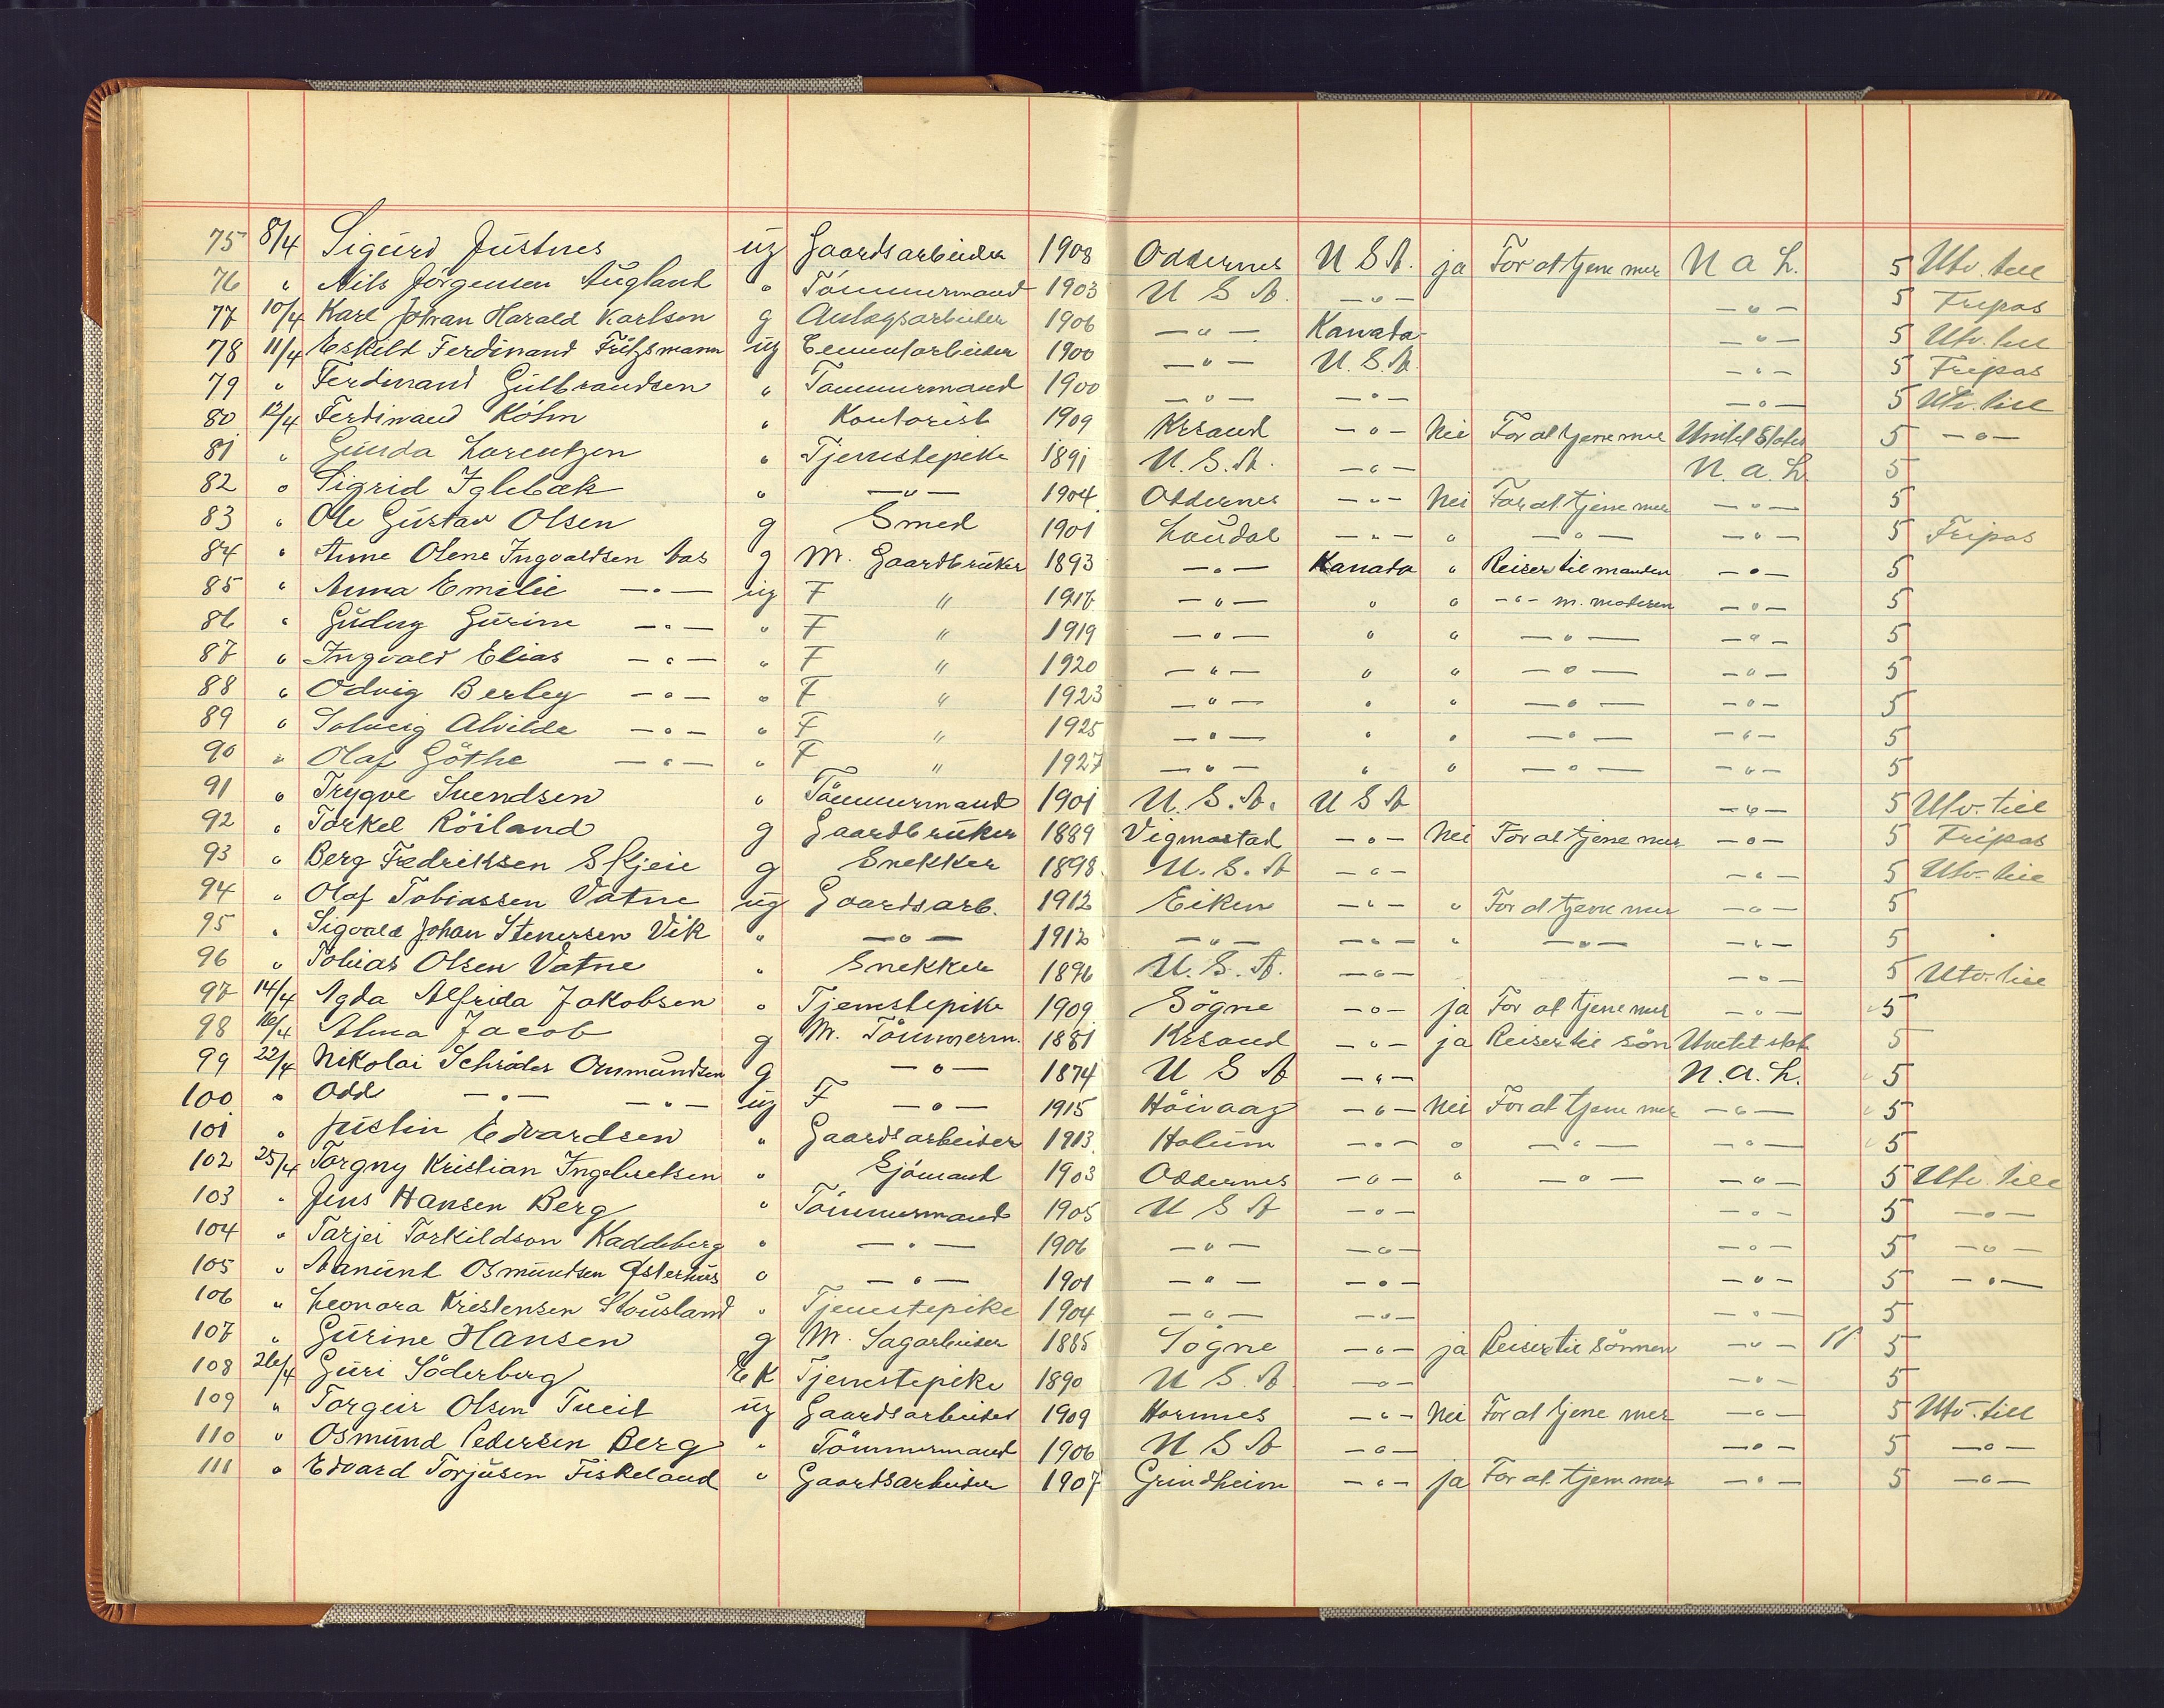 75 8/4 Sigurd Justnes ug Gaardsarbeider 1908 Oddernes U S A. ja For at tjene mer N a L. 5 Utv. till
76 " Nils Jörgensen Augland " Tömmermand 1903 U S A. —"— —"— 5 Fripas
77 10/4 Karl Johan Harald Karlsen g Anlægsarbeider 1906 —"— Kanada —"— 5 Utv. till
78 11/4 Eskild Ferdinand Fritzsmann ug Cementarbeider 1900 —"— U. S. A. —"— 5 Fripas
79 " Ferdinand Gulbrandsen " Tömmermand 1900 —"— —"— —"— 5 Utv. till
80 12/4 Ferdinand Köhn " Kontorist 1909 Krsand —"— Nei For at tjene mer United States 5 —"—
81 " Gunda Lorentzen " Tjenestepike 1891 U. S. A. —"— N. a. L. 5
82 " Sigrid Iglebæk " —"— 1904 Oddernes —"— Nei For at tjene mer —"— 5
83 " Ole Gustav Olsen g Smed 1901 Laudal —"— " —"— —"— 5 Fripas
84 " Anne Olene Ingvaldsen Aas g M. Gaardbruker 1893 —"— Kanada " Reiser til manden —"— 5
85 " Anna Emilie —"— ug F " 1917 —"— " " —"— m. moderen —"— 5
86 " Gudny Gurine —"— " F " 1919 —"— " " —"— —"— 5
87 " Ingvald Elias —"— " F " 1920 —"— " " —"— —"— 5
88 " Odvig Berley —"— " F " 1923 —"— " " —"— —"— 5
89 " Solveig Alvilde —"— " F " 1925 —"— " " —"— —"— 5
90 " Olaf Göthe —"— " F " 1927 —"— " " —"— —"— 5
91 " Trygve Svendsen " Tömmermand 1901 U. S. A. U S A —"— 5 Utv. till
92 " Torkel Röiland g Gaardbruker 1889 Vigmostad —"— Nei For at tjene mer —"— 5 Fripas
93 " Berg Fredriksen Skjeie g Snekker 1898 U. S. A —"— —"— 5 Utv. till
94 " Olaf Tobiassen Vatne ug Gaardsarb. 1912 Eiken —"— " For at tjene mer —"— 5
95 " Sigvald Johan Stenersen Vik " —"— 1912 —"— —"— " —"— —"— 5
96 " Tobias Olsen Vatne " Snekker 1896 U. S. A. —"— —"— 5 Utv. till
97 14/4 Agda Alfrida Jakobsen " Tjenestepike 1909 Sögne —"— ja For at tjene mer —"— 5
98 16/4 Alma Jacob g M. Tömmerm. 1881 Krsand —"— ja Reiser til sön Unitet stat 5
99 22/4 Nikolai Schröder Osmundsen g —"— 1874 U S A —"— N. a. L. 5
100 " Odd —"— —"— ug F —"— 1915 Höivaag —"— Nei For at tjene mer —"— 5
101 " Justin Edvardsen " Gaardsarbeider 1913 Holum —"— " —"— —"— 5
102 25/4 Torgny Kristian Ingebretsen " Sjömand 1903 Oddernes —"— " —"— —"— 5 Utv. till
103 " Jens Hansen Berg " Tömmermand 1905 U S A —"— —"— 5 —"—
104 " Tarjei Torkildson Kaddeberg " —"— 1906 —"— —"— —"— 5 —"—
105 " Aanund Osmundsen Østerhus " —"— 1901 —"— —"— —"— 5 —"—
106 " Leonora Kristensen Stousland " Tjenestepike 1904 —"— —"— —"— 5
107 " Gurine Hansen g M. Sagarbeider 1885 Sögne —"— ja Reiser til sönnen —"— 11 5
108 26/4 Guri Söderberg EK Tjenestepike 1890 U S. A —"— —"— 5
109 " Torgeir Olsen Tveit ug Gaardsarbeider 1909 Hornnes —"— Nei For at tjene mer —"— 5 Utv. till
110 " Osmund Pedersen Berg " Tömmermand 1906 U S A —"— —"— 5 —"—
111 " Edvard Torjusen Fiskeland " Gaardsarbeider 1907 Grindheim —"— ja For at tjene mer —"— 5 —"—